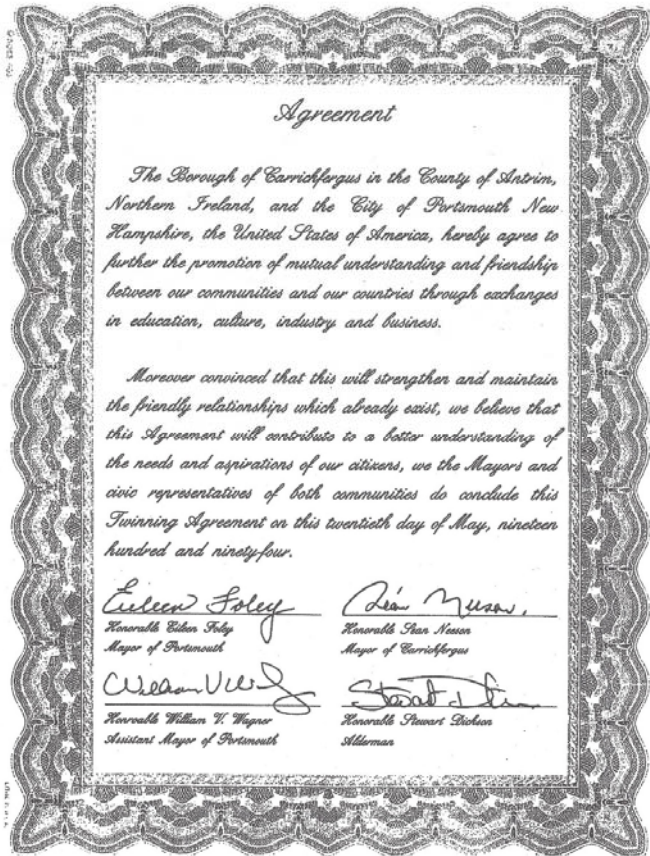 Agreement
The Borough of Carrickfergus in the County of Antrim,
Northern Ireland, and the City of Portsmouth New
Hampshire, the United States of America, hereby agree to
further the promotion of mutual understanding and friendship
between our communities and our countries through exchanges
in education, culture, industry and business.
Moreover convinced that this will strengthen and maintain
the friendly relationships which already exist, we believe that
this Agreement will contribute to a better understanding of
the needs and aspirations of our citizens, we the Mayors and
civic representatives of both communities do conclude this
Twinning Agreement on this twentieth day of May, nineteen
hundred and ninety-four.
Eileen Foley
Honorable Eileen Foley
Mayor of Portsmouth
Seán Neeson.
Honorable Sean Neeson
Mayor of Carrickfergus
William V Wag
Honroable William V. Wagner
Assistant Mayor of Portsmouth
Stewart Dickson
Honorable Stewart Dickson
Alderman